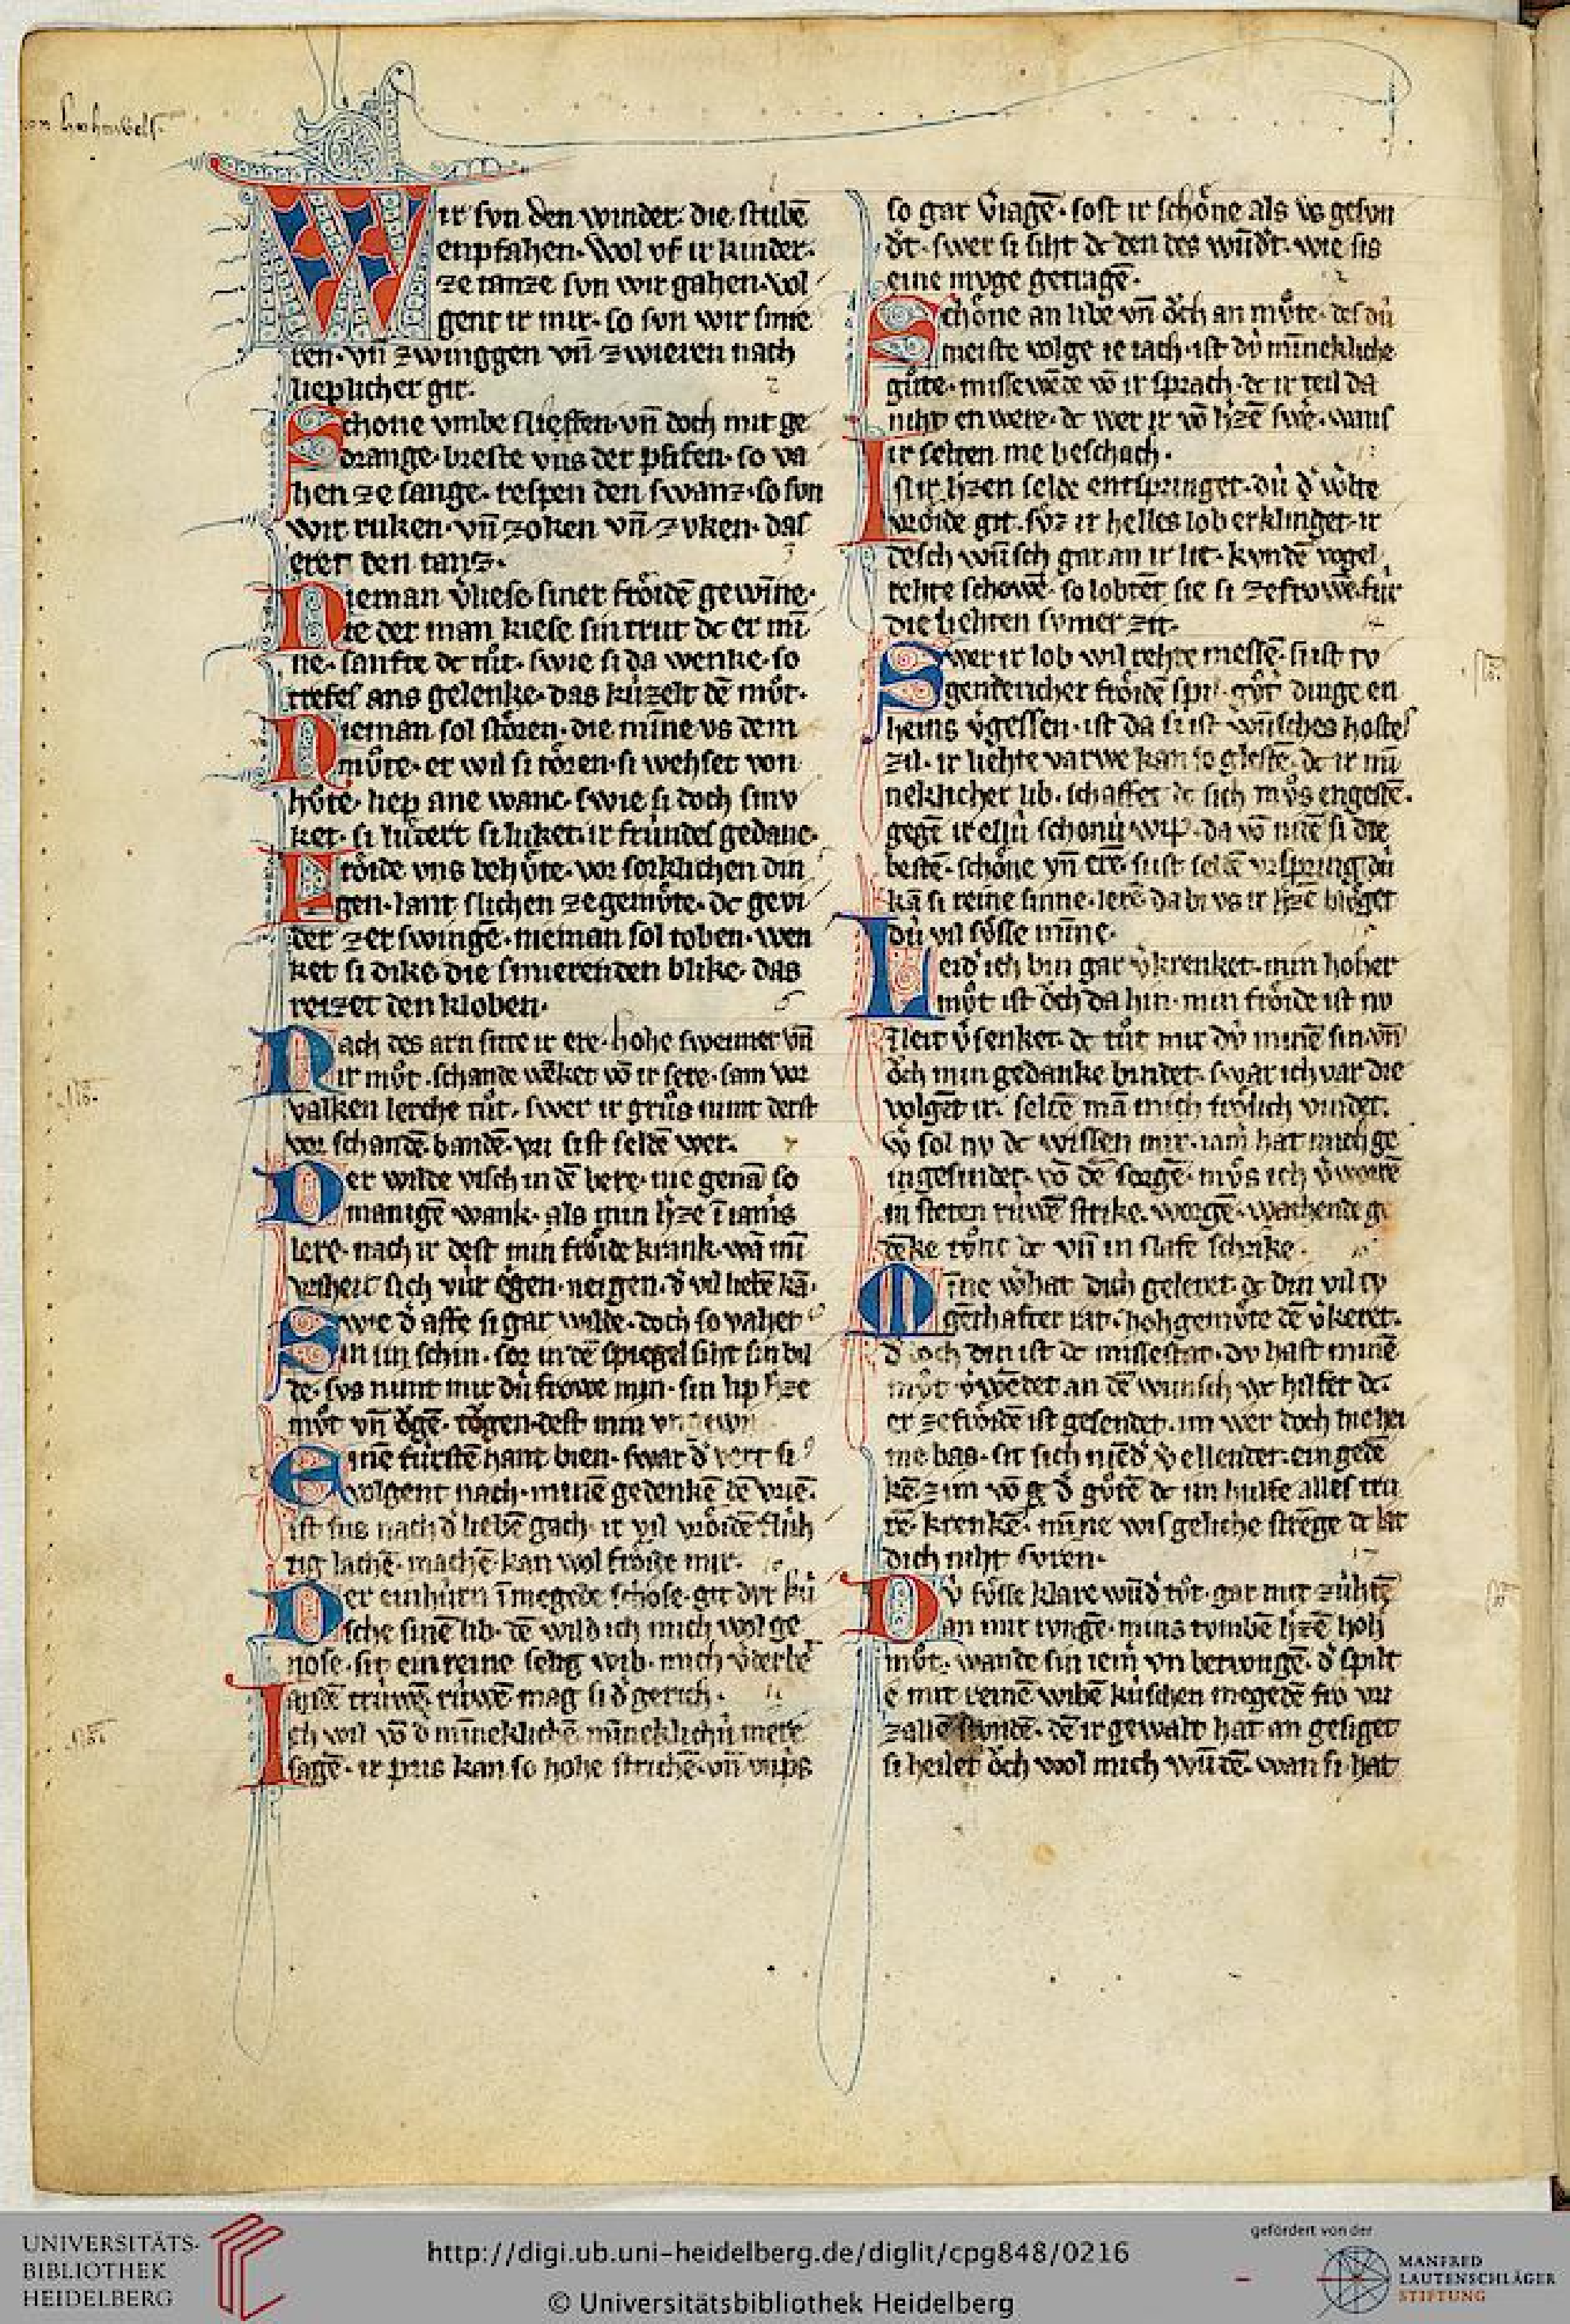 ir svn den winder. die stubē
enpfahen. wol vf ir kinder.
ze tanze svn wir gahen. vol
gent ir mir. so svn wir smie
ren. vn̄ zwinggen vn̄ zwieren nach
lieplicher gir.
Schone vmbe slieffen. vn̄ doch mit ge
drange. breste vns der pfifen. so va
hen ze sange. respen den swanz. so svn
wir ruken. vn̄ zoken vn̄ zvken. das
eret den tanz.
Nieman v̄liese siner fröidē gewīne.
te der man kiese sin trut dc er mī
ne. sanfte dc tůt. swie si da wenke. so
trefes ans gelenke. das kúzelt dē můt.
Nieman sol stören. die mīne vs dem
můte. er wil si tören. si wehset von
hůte. liep ane wanc. swie si doch smv
ket. si luzert si luket. ir frúndes gedanc.
Fröide vns behůte. vor sorklichen din
gen. lant slichen ze gemůte. dc gevi
der zer swingē. nieman sol toben. wen
ket si dike. die smierenden blike. das
reizet den kloben.
Nach des arn sitte ir ere. hohe sweimet vn̄
ir můt. schande wēket vō ir sere. sam vor
valken lerche tůt. swer ir grůs nimt derst
vor schandē. bandē. vri sist seldē wer.
Der wilde visch in dē bere. nie genā so
manigē wank. als min h̄ze ī iam̄s
lere. nach ir dest min fröide krank. wā mī
triheit sich vúr eigen. neigen. d̄ vil liebē kā.
Swie d̄ affe si gar wilde. doch so vahet
in sin schin. sor in dē spiegel siht sin bil
de. svs nimt mir dú frowe min. sin lip h̄ze
můt vn̄ ögē. tögen. dest min
Einē fúrstē hant bien. swar d̄ vert si
volgent nach. minē gedenkē dē vriē.
ist sus nach d̄ liebē gach. ir vil vröidē flúh
tig lachē. machē kan wol fröide mir.
Der einhúrn ī megede schose. git dvr kú
sche sinē lib. dē wild ich mich wol ge
nose. sit ein reine selig wib. mich v̄derbe
andē trúwē. rúwē mag si d̄ gerich.
Ich wil vō d̄ mīneklichē mīneklichú mere
sagē. ir pris kan so hohe strichē. vn̄
so gar v̄iagē. sost ir schöne als vs gesvn
d̄t. swer si siht dc den des wūd̄t. wie sis
eine mvge getragē.
Schöne an libe vn̄ öch an můte. des dú
meiste volge ie iach. ist dú mīnekliche
gůte. missewēde vō ir sprach. dc ir teil da
niht en were. dc wer ir vō h̄zē swe. wans
ir selten me beschach.
Ist ir h̄zen selde entspringet. dú d̄ welte
vröide git. svz ir helles lob erklinget. ir
desch wūsch gar an ir lit. kvndē vogel
rehte schowē. so lobtēt sie si ze frowē. fúr
die liehten svmer zit.
Swer ir lob wil rehte messē. si ist tv
gentricher fröidē spil. gůt dinge en
heins v̄gessen. ist da si ist wūsches hostes
zil. ir liehte varwe kan so glestē. dc ir mī
neklicher lib. schaffet dc sich můs engestē.
gegē ir ellú schonú wip. da vō mē si die
bestē. schöne vn̄ erē. sust seldē vrspring dú
kā si reine sinne. lerē da bi vs ir h̄zē blůget
dú vil sůsse mīne.
Leid̄ ich bin gar v̄krenket. min hoher
můt ist öch da hin. min fröide ist nv
neit v̄senket. dc tůt mir dú minē sin. vn̄
öch min gedanke bindet. swar ich var die
volgēt ir. seltē mā mich frölich vindet.
w̄ sol nv dc wissen mir. iam̄ hat mich ge
ingesindet. vō dē sorgē. můs ich v̄worrē
in steten rúwē strike. worgē. wachende ge
dēke tůnt dc vn̄ in slafe schrike.
Mīne w̄ hat dich geleret. dc din vil tv
gēthafter rat. hohgemůte dē v̄keret.
d̄ doch din ist dc missestat. dv hast minē
můt v̄wēdet an dē wunsch. wc hilfet dc.
er ze fröidē ist gesendet. im wer doch hie hei
me bas. sit sich niēd̄ v̄ellendet. ein gedē
kē. zim vō g d̄ gůtē dc im hulfe alles tru
rē. krenkē. mīne wis geliche strēge dc lat
dich niht svren.
Dv sůsse klare wūd̄ tůt. gar mit zúhtē
an mir ivngē. mins tvmbē h̄zē hoh
můt. wande sin iem̄ vn betwngē. d̄ spilt
e mit reinē wibē kúschen megedē fro vri
zallē stvndē. dē ir gewalt hat an gesiget
si heilet öch wol mich wūdē. wan si hat
UNIVERSITÄTS-
BIBLIOTHEK
HEIDELBERG
http://digi.ub.uni-heidelberg.de/diglit/cpg848/0216
© Universitätsbibliothek Heidelberg
gefördert von der
MANFRED
LAUTENSCHLÄGER
STIFTUNG